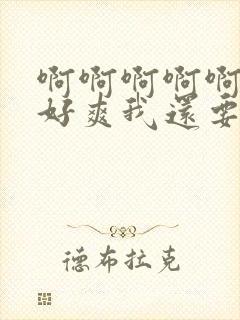 啊啊啊啊啊
好爽我還要
德布拉克